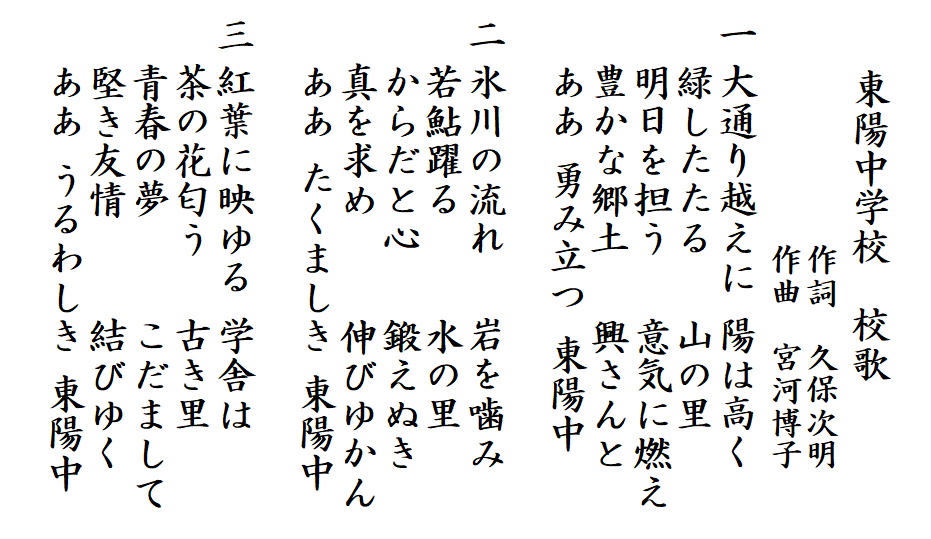 東陽中学校　校歌
作詞　久保次明
作曲　宮河博子
一　大通り越えに　陽は高く
緑したたる　山の里
明日を担う　意気に燃え
豊かな郷土　興さんと
ああ　勇み立つ　東陽中
二　氷川の流れ　岩を噛み
若鮎躍る　水の里
からだと心　鍛えぬき
真を求め　伸びゆかん
ああ　たくましき　東陽中
三　紅葉に映ゆる　学舎は
茶の花匂う　古き里
青春の夢　こだまして
堅き友情　結びゆく
ああ　うるわしき　東陽中